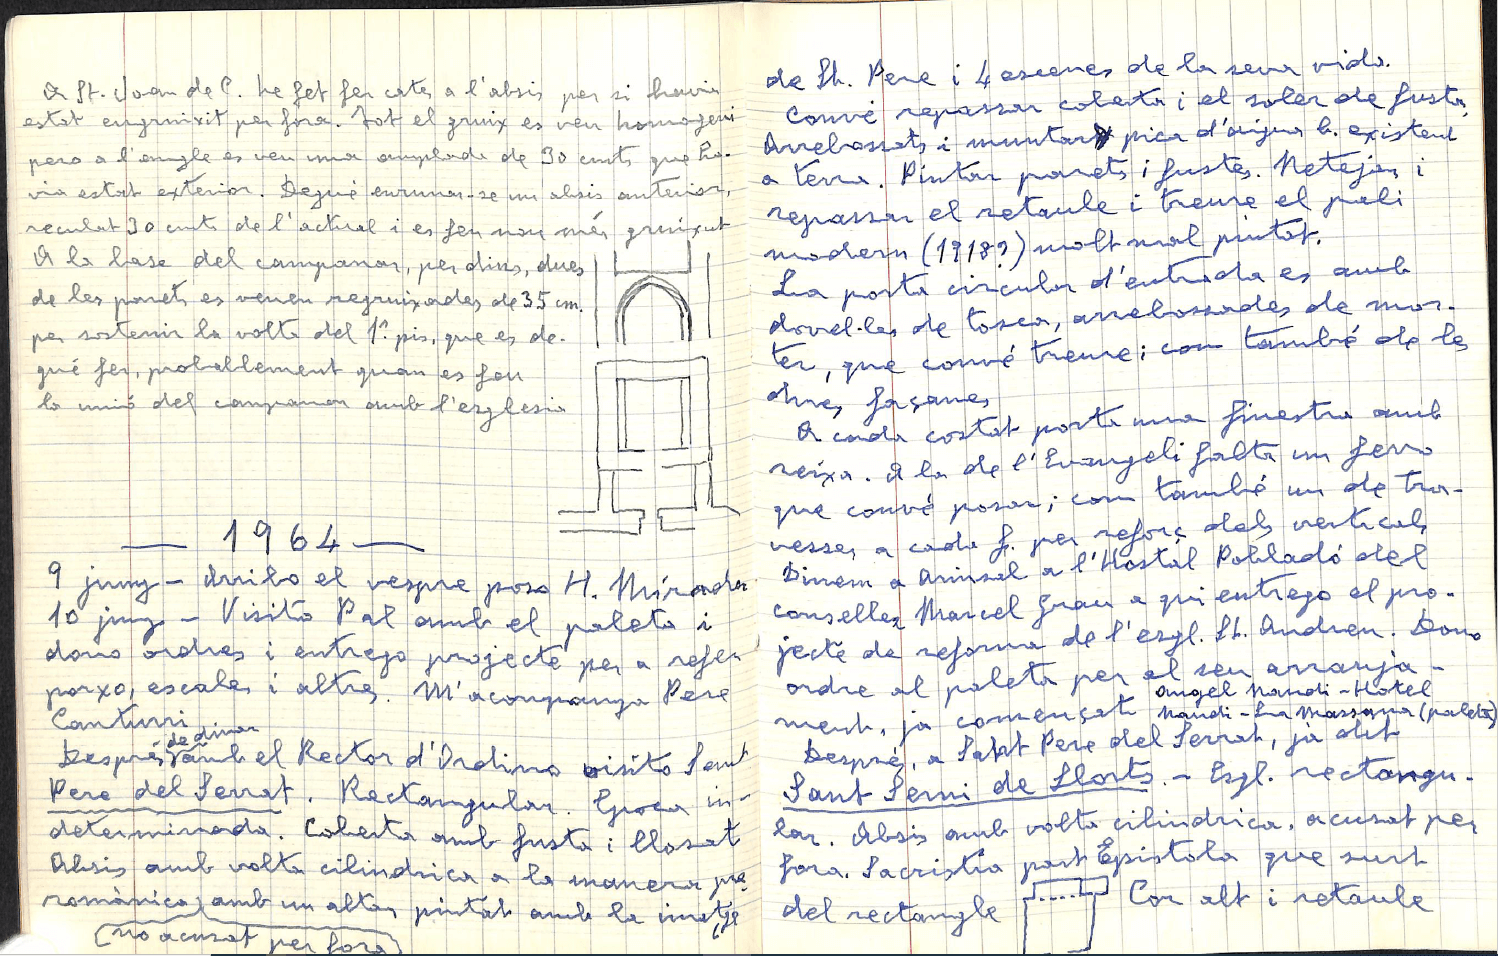 A St. Joan de C. he fet fer cates a l'absis per si havia
estat engruixit per fora. Tot el gruix es veu homogeni
pero a l'angle es veu una amplada de 30 cmts que ha-
via estat exterior. Degué enrunar-se un absis anterior,
reculat 30 cmts de l'actual i es feu nou més gruixut
A la base del campanar, per dins, dues
de les parets es veuen regruixades de 35 cm.
per sostenir la volta del 1er pis, que es de-
gué fer, probablement quan es feu
la unió del campanar amb l'esglesia
— 1964 —
9 juny – Arribo el vespre poso H. Mirador
10 juny – Visito Pal amb el paleta i
dono ordres i entrego projecte per a refer
porxo, escales i altres. M'acompanya Pere
Canturri
Després de dinar amb el Rector d'Ordino visito Sant
Pere del Serrat. Rectangular. Epoca in-
determinada. Coberta amb fusta i llosat
Absis amb volta cilindrica a la manera pre
romànica, amb un altar pintat amb la imatge
(no acusat per fora)
de St. Pere i 4 escenes de la seva vida.
Convé repassar coberta i el soler de fusta,
Arrebossats i muntar pica d'aigua b. existent
a terra. Pintar parets i fustes. Netejar i
repassar el retaule i treure el pali
modern (1918?) molt mal pintat.
La porta circular d'entrada es amb
dovel·les de tosca, arrebossades de mor-
ter, que convé treure; com també de les
altres façanes
A cada costat porta una finestra amb
reixa. A la de l'Evangeli falta un ferro
que convé posar; com també un de tra-
vesser a cada f. per reforç dels verticals
Dinem a Arinsal a l'Hostal Pobladó del
conseller Marcel Grau a qui entrego el pro-
jecte de reforma de l'esgl. St. Andreu. Dono
ordre al paleta per al seu arranja-
ment, ja començat Angel Naudi - Hotel
Naudi - La Massana (paleta)
Després, a Sant Pere del Serrat, ja dit
Sant Serni de Llorts. – Esgl. rectangu-
lar. Absis amb volta cilindrica, acusat per
fora. Sacristia part Epistola que surt
del rectangle Cor alt i retaule